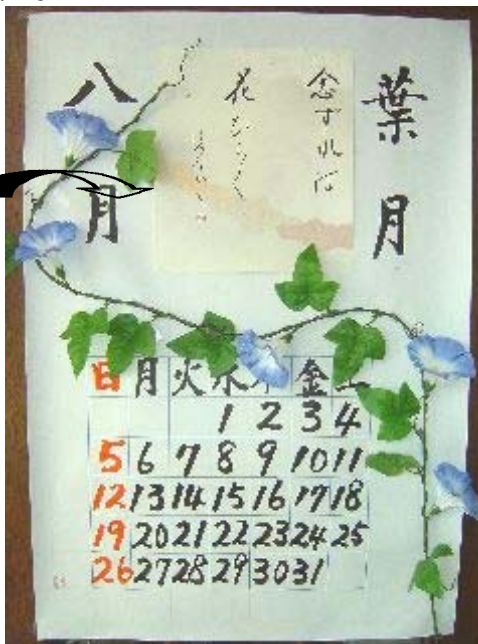 葉月
念ずれば
花ひらく
八月
日 月 火 水 木 金 土
1 2 3 4
5 6 7 8 9 10 11
12 13 14 15 16 17 18
19 20 21 22 23 24 25
26 27 28 29 30 31